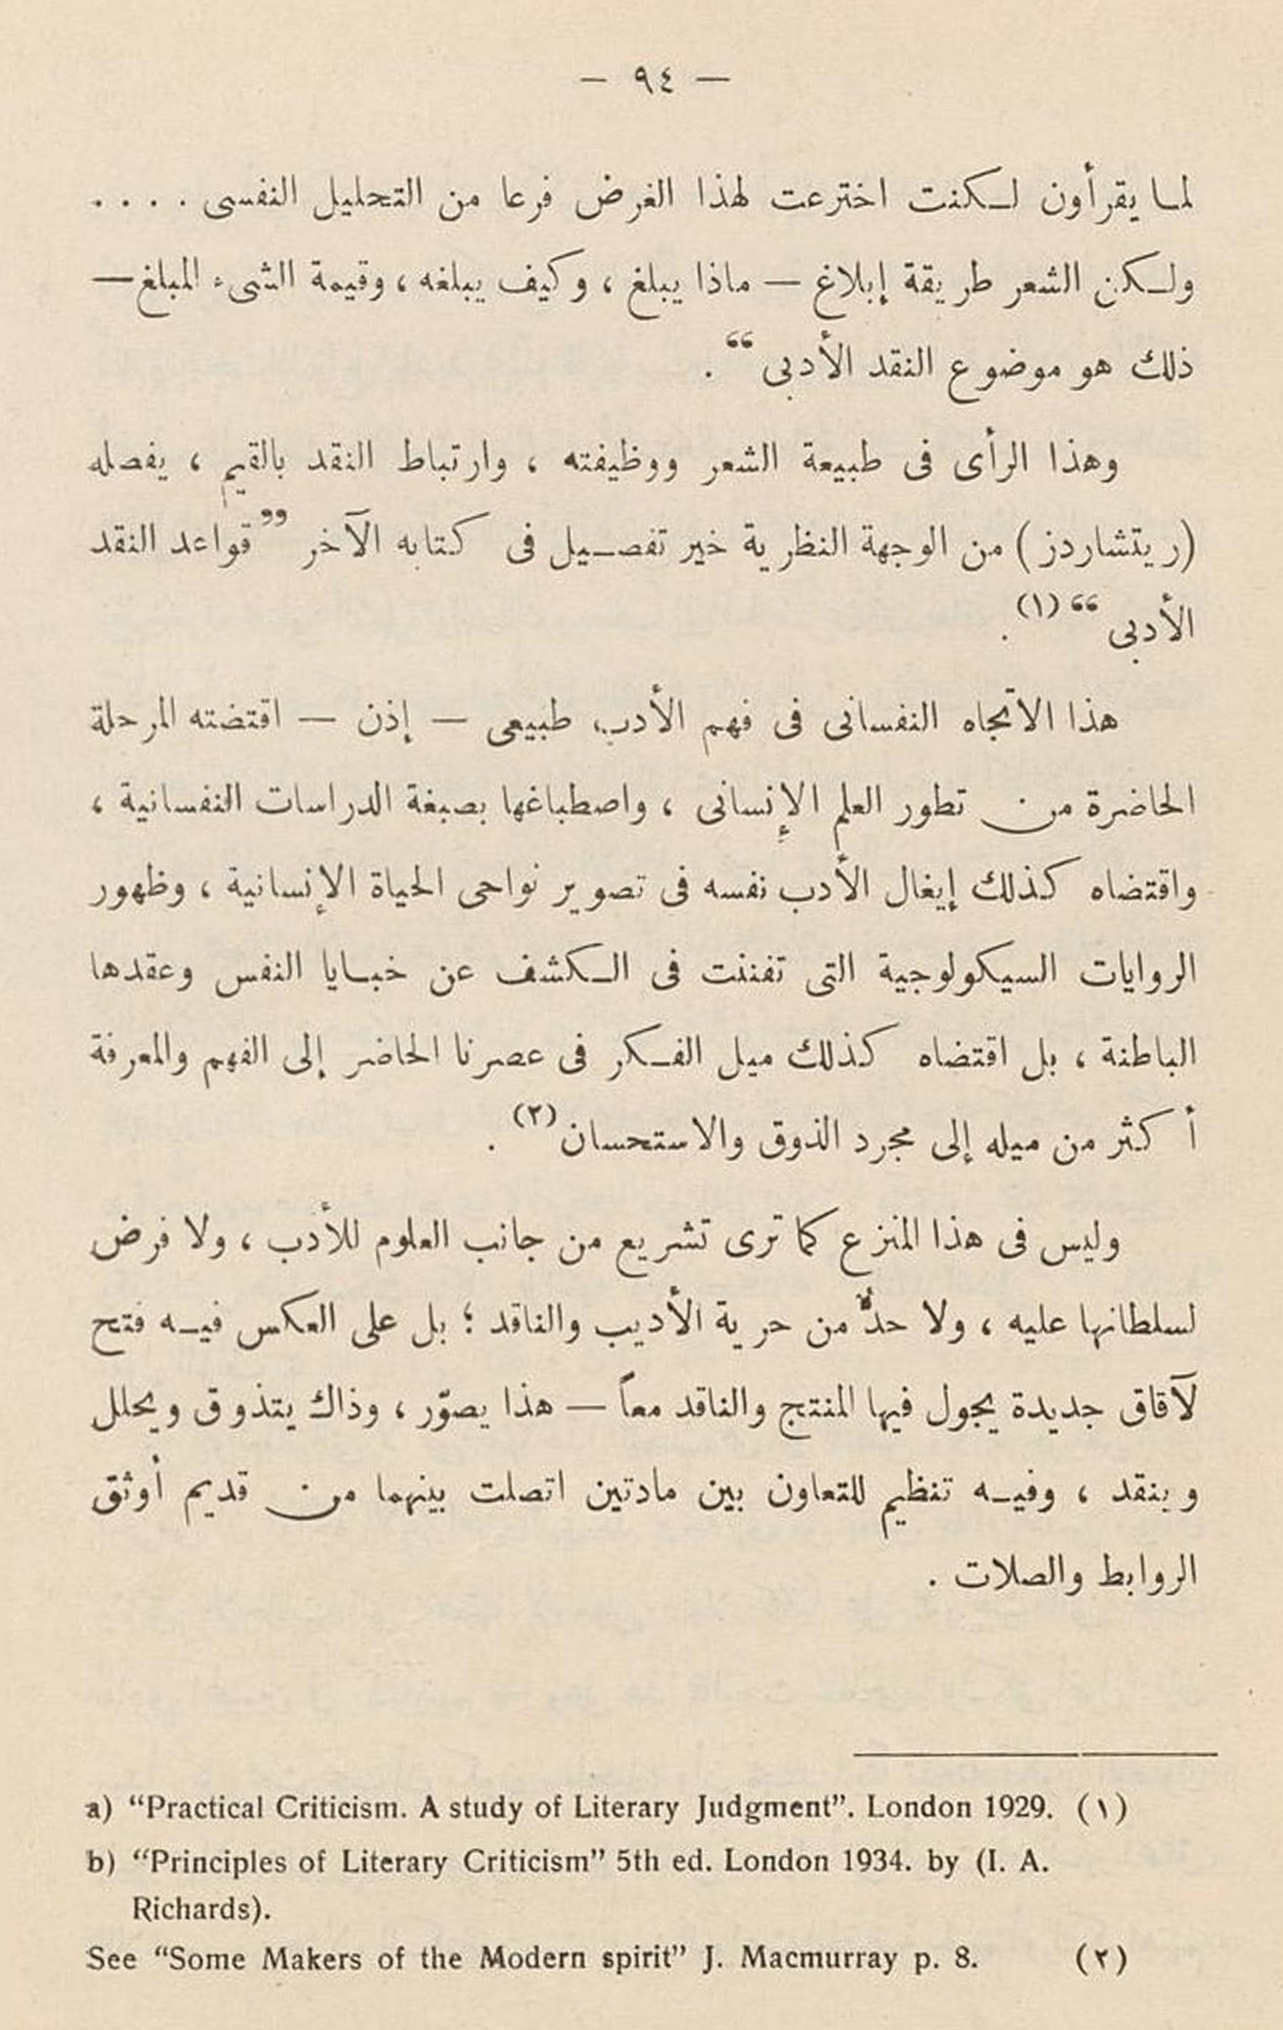 — ٩٤ —
لما يقرأون لكنت اخترعت لهذا الغرض فرعا من التحليل النفسى . . . .
ولكن الشعر طريقة إبلاغ — ماذا يبلغ ، وكيف يبلغه ، وقيمة الشىء المبلغ —
ذلك هو موضوع النقد الأدبى “ .
وهذا الرأى فى طبيعة الشعر ووظيفته ، وارتباط النقد بالقيم ، يفصله
(ريتشاردز) من الوجهة النظرية خير تفصيل فى كتابه الآخر ” قواعد النقد
الأدبى “ (١) .
هذا الاتجاه النفسانى فى فهم الأدب طبيعى — إذن — اقتضته المرحلة
الحاضرة من تطور العلم الإنسانى ، واصطباغها بصبغة الدراسات النفسانية ،
واقتضاه كذلك إيغال الأدب نفسه فى تصوير نواحى الحياة الإنسانية ، وظهور
الروايات السيكولوجية التى تفننت فى الكشف عن خبايا النفس وعقدها
الباطنة ، بل اقتضاه كذلك ميل الفكر فى عصرنا الحاضر إلى الفهم والمعرفة
أكثر من ميله إلى مجرد الذوق والاستحسان (٢) .
وليس فى هذا المنزع كما ترى تشريع من جانب العلوم للأدب ، ولا فرض
لسلطانها عليه ، ولا حدٌّ من حرية الأديب والناقد ؛ بل على العكس فيه فتح
لآقاق جديدة يجول فيها المنتج والناقد معاً — هذا يصوّر ، وذاك يتذوق ويحلل
وينقد ، وفيه تنظيم للتعاون بين مادتين اتصلت بينهما من قديم أوثق
الروابط والصلات .
a) “Practical Criticism. A study of Literary Judgment”. London 1929. (١)
b) “Principles of Literary Criticism” 5th ed. London 1934. by (I. A.
Richards).
See “Some Makers of the Modern spirit” J. Macmurray p. 8. (٢)